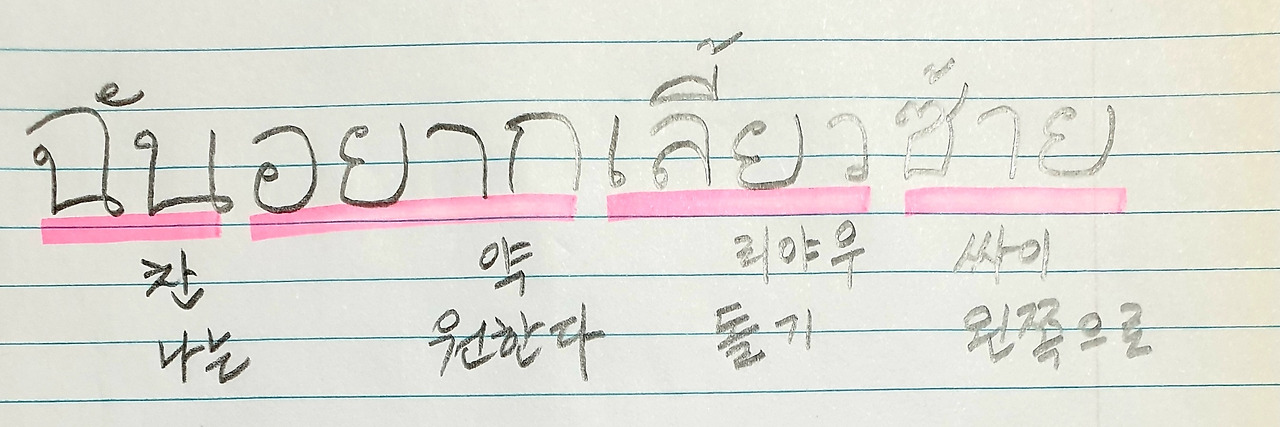 ฉันอยากเลี้ยวซ้าย
찬 약 리야우 싸이
나는 원한다 돌기 왼쪽으로